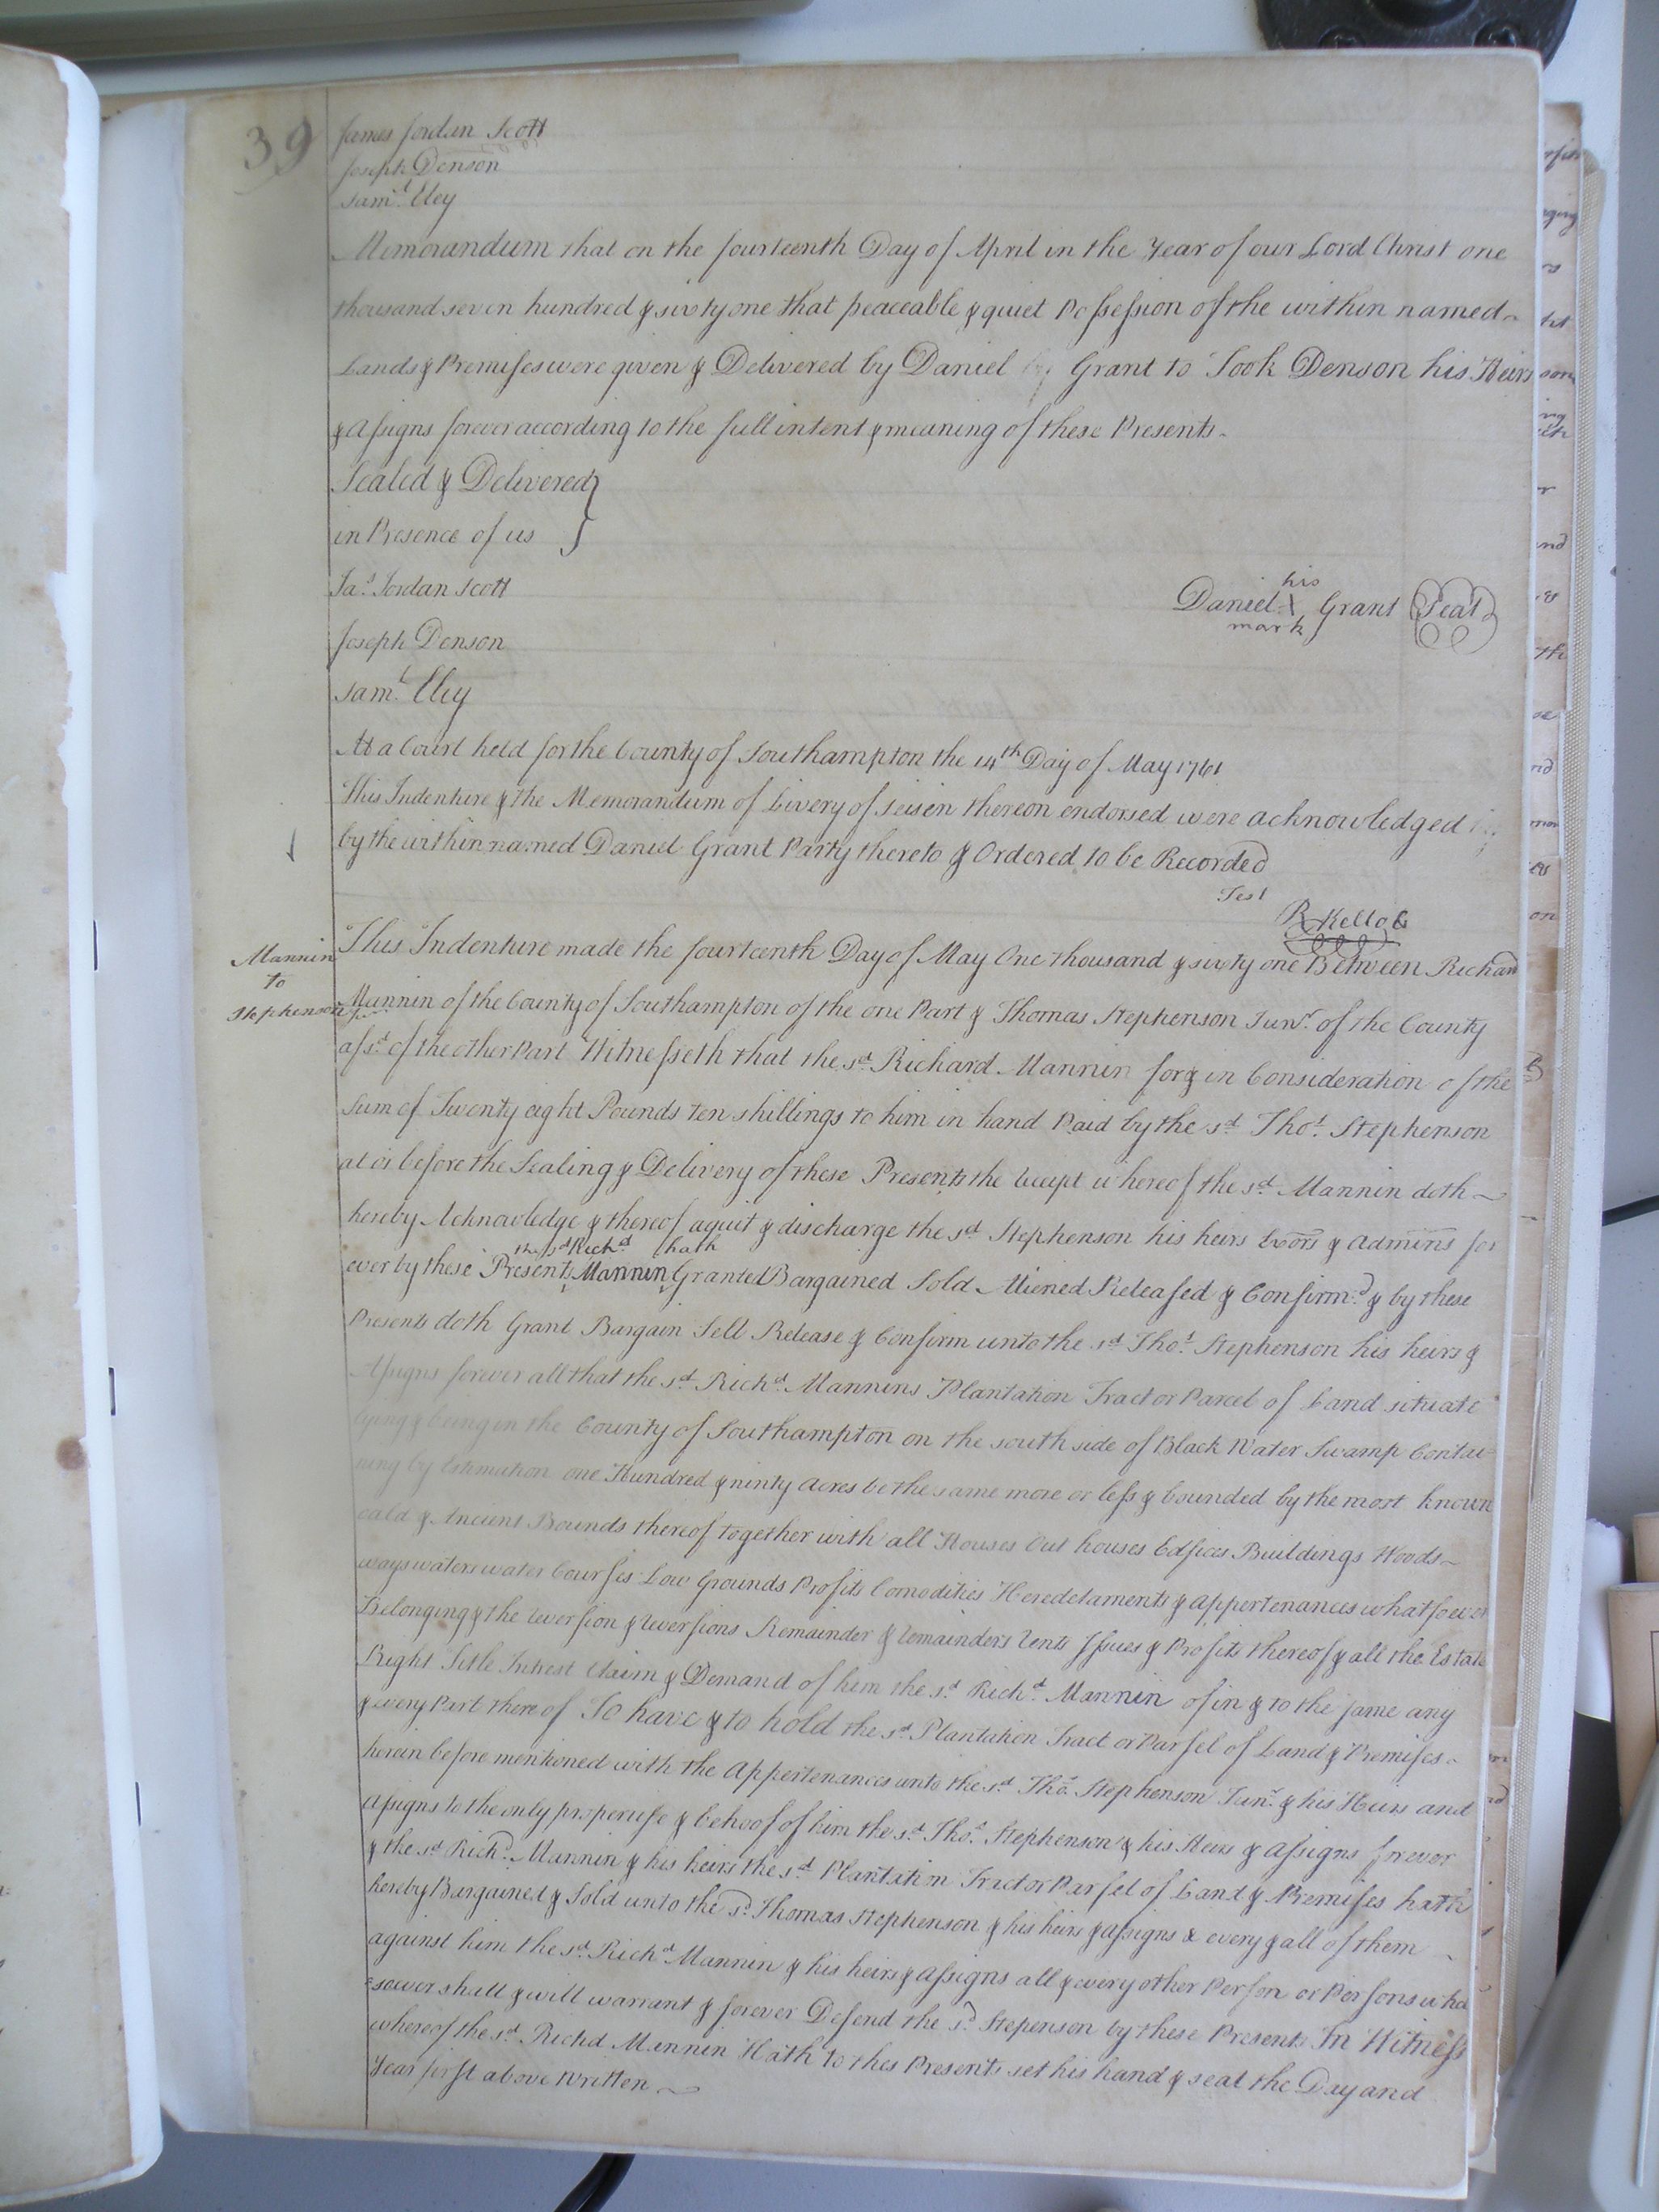 39
James Jordan Scott
Joseph Denson
Sam.l Eley
Memorandum that on the fourteenth Day of April in the Year of our Lord Christ one
thousand seven hundred & sixty one that peaceable & quiet Possession of the within named
Lands & Premises were given & Delivered by Daniel Grant to Took Denson his Heirs
& Assigns forever according to the full intent & meaning of these Presents.
Sealed & Delivered }
in Presence of us }
Ja.s Jordan Scott
his
Daniel X Grant Seal
mark
Joseph Denson
Sam.l Eley
At a Court held for the County of Southampton the 14th Day of May 1761
This Indenture & the Memorandum of Livery of Seisin thereon endorsed were acknowledged
by the within named Daniel Grant Party thereto & Ordered to be Recorded
Test
R Kello C
Mannin
to
Stephenson
This Indenture made the fourteenth Day of May One thousand & sixty one Between Richard
Mannin of the County of Southampton of the one Part & Thomas Stephenson Junr. of the County
afs.d of the other Part Witnesseth that the s.d Richard Mannin for & in Consideration of the
Sum of Twenty eight Pounds ten shillings to him in hand Paid by the s.d Tho.s Stephenson
at or before the Sealing & Delivery of these Presents the receipt whereof the s.d Mannin doth
hereby Acknowledge & thereof aquit & discharge the s.d Stephenson his heirs Exors & Admins for
the s.d Rich.d hath
ever by these Presents Mannin Granted Bargained Sold Aliened Released & Confirm.d & by these
Presents doth Grant Bargain Sell Release & Confirm unto the s.d Tho.s Stephenson his heirs &
Assigns forever all that the s.d Rich.d Mannins Plantation Tract or Parcel of Land situate
lying & being in the County of Southampton on the south side of Black Water Swamp Contai=
ning by Estimation one Hundred & ninty Acres be the same more or less & bounded by the most known
& Ancient Bounds thereof together with all Houses Out houses Edfices Buildings Woods
ways waters water Courses Low Grounds Profits Comodities Heredetaments & appertenances whatsoever
Belonging & the reversion & reversions Remainder & remainders rents Issues & Profits thereof & all the Estate
Right Title Intrest Claim & Demand of him the s.d Rich.d Mannin of in & to the same any
& every Part there of To have & to hold the s.d Plantation Tract or Parsel of Land & Premises
herein before mentioned with the Appertenances unto the s.d Tho.s Stephenson Junr. & his Heirs and
Assigns to the only proper use & behoof of him the s.d Tho.s Stephenson & his Heirs & Assigns forever
& the s.d Rich.d Mannin & his heirs the s.d Plantation Tract or Parsel of Land & Premises hath
hereby Bargained & Sold unto the s.d Thomas Stephenson & his heirs & assigns & every & all of them
against him the s.d Rich.d Mannin & his heirs & Assigns all & every other Person or Persons who
=soever shall & will warrant & forever Defend the s.d Stepenson by these Presents In Witness
whereof the s.d Richd Mannin Hath to thes Presents set his hand & seal the Day and
Year first above Written